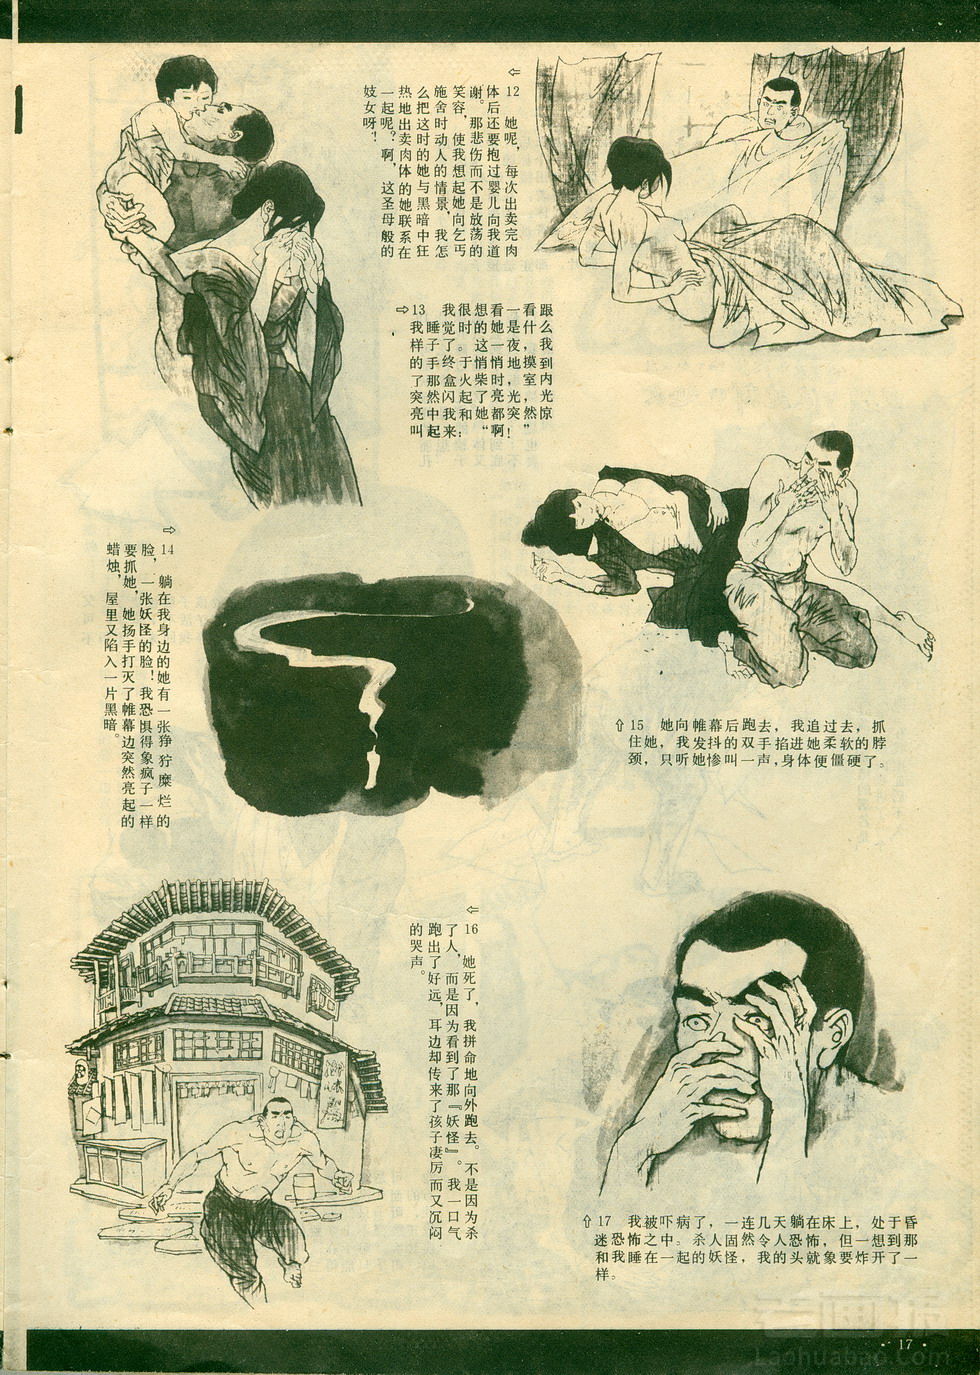 ⇦
12 她呢，每次出卖完肉
体后还要抱过婴儿向我道
谢。那悲伤而不是放荡的
笑容，使我想起她向乞丐
施舍时动人的情景，我怎
么把这时的她与黑暗中狂
热地出卖肉体的她联系在
一起呢？啊，这圣母般的
妓女呀！
⇨13 我很想看一看跟
我睡觉时的她是什么
样子了。这一夜，我
的手终于悄悄地摸到
了那盒火柴时，室内
突然闪起了亮光，光
亮中我和她都突然惊
叫起来：“啊！”
⇨
14 躺在我身边的她有一张狰狞糜烂的
脸，一张妖怪的脸！我恐惧得象疯子一样
要抓她，她扬手打灭了帷幕边突然亮起的
蜡烛，屋里又陷入一片黑暗。
⇧15 她向帷幕后跑去，我追过去，抓
住她，我发抖的双手掐进她柔软的脖
颈，只听她惨叫一声，身体便僵硬了。
⇦
16 她死了，我拼命地向外跑去。不是因为杀
了人，而是因为看到了那『妖怪』。我一口气
跑出了好远，耳边却传来了孩子凄厉而又沉闷
的哭声。
⇧17 我被吓病了，一连几天躺在床上，处于昏
迷恐怖之中。杀人固然令人恐怖，但一想到那
和我睡在一起的妖怪，我的头就象要炸开了一
样。
老画报
· 17 ·
Laohuabao.Com